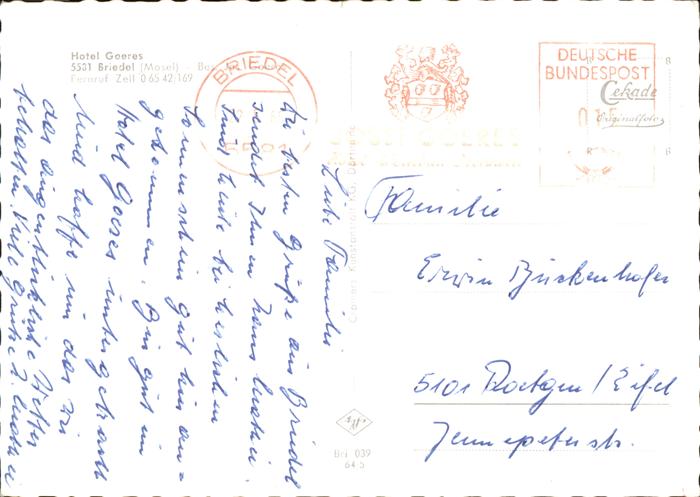 Hotel Goeres
5531 Briedel (Mosel) - Bes.
Fernruf Zell 0 65 42/169
BRIEDEL
5581
DEUTSCHE
BUNDESPOST
Cekade
Originalfoto
Liebe Familie
die besten Grüße aus Briedel
sendet Ihnen
Sind heute bei bestem
Sonnenschein gut hier an=
gekommen. Bin gut im
Hotel Goeres untergebracht
und hoffe nun das wir
das augenblickliche Wetter
behalten. Viele Grüße
Familie
Erwin Bückenhofer
5101 Roetgen/Eifel
Jennepeterstr.
Cramers Kunstanstalt KG, Dortmund
Bri 039
64 5